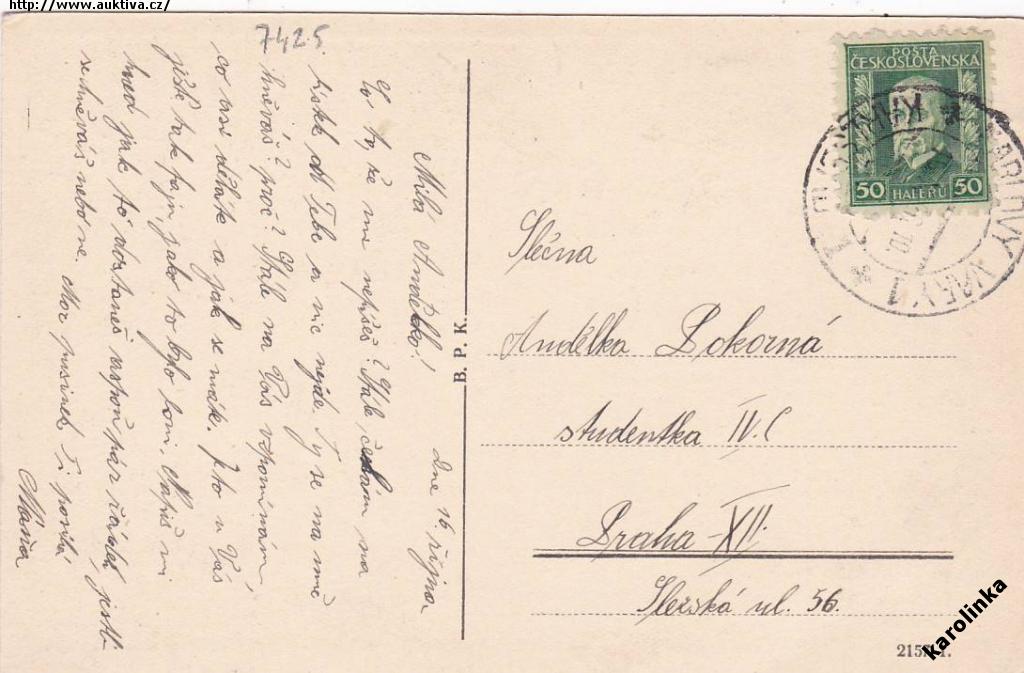 http://www.auktiva.cz/
7425.
Milá Anđelko!
dne 16. října.
Co to, že mi nepíšeš? Stále čekám na
lístek od Tebe a nic nejde. Ty se na mně
hněváš? proč? Stále na Vás vzpomínám,
co asi děláte a jak se máte. Je to u Vás
ještě tak fajn, jako to bylo loni. Napiš mi
hned jak to dostaneš aspoň pár řádek, jestli
se hněváš nebo ne. Moc pusinek Ti posílá
Máňa
B. P. K.
POŠTA
ČESKOSLOVENSKA
50 HALÉŘŮ 50
KARLOVY VARY 1
Slečna
Andělka Pokorná
studentka IV.C
Praha-XII.
Slezská ul. 56.
karolinka